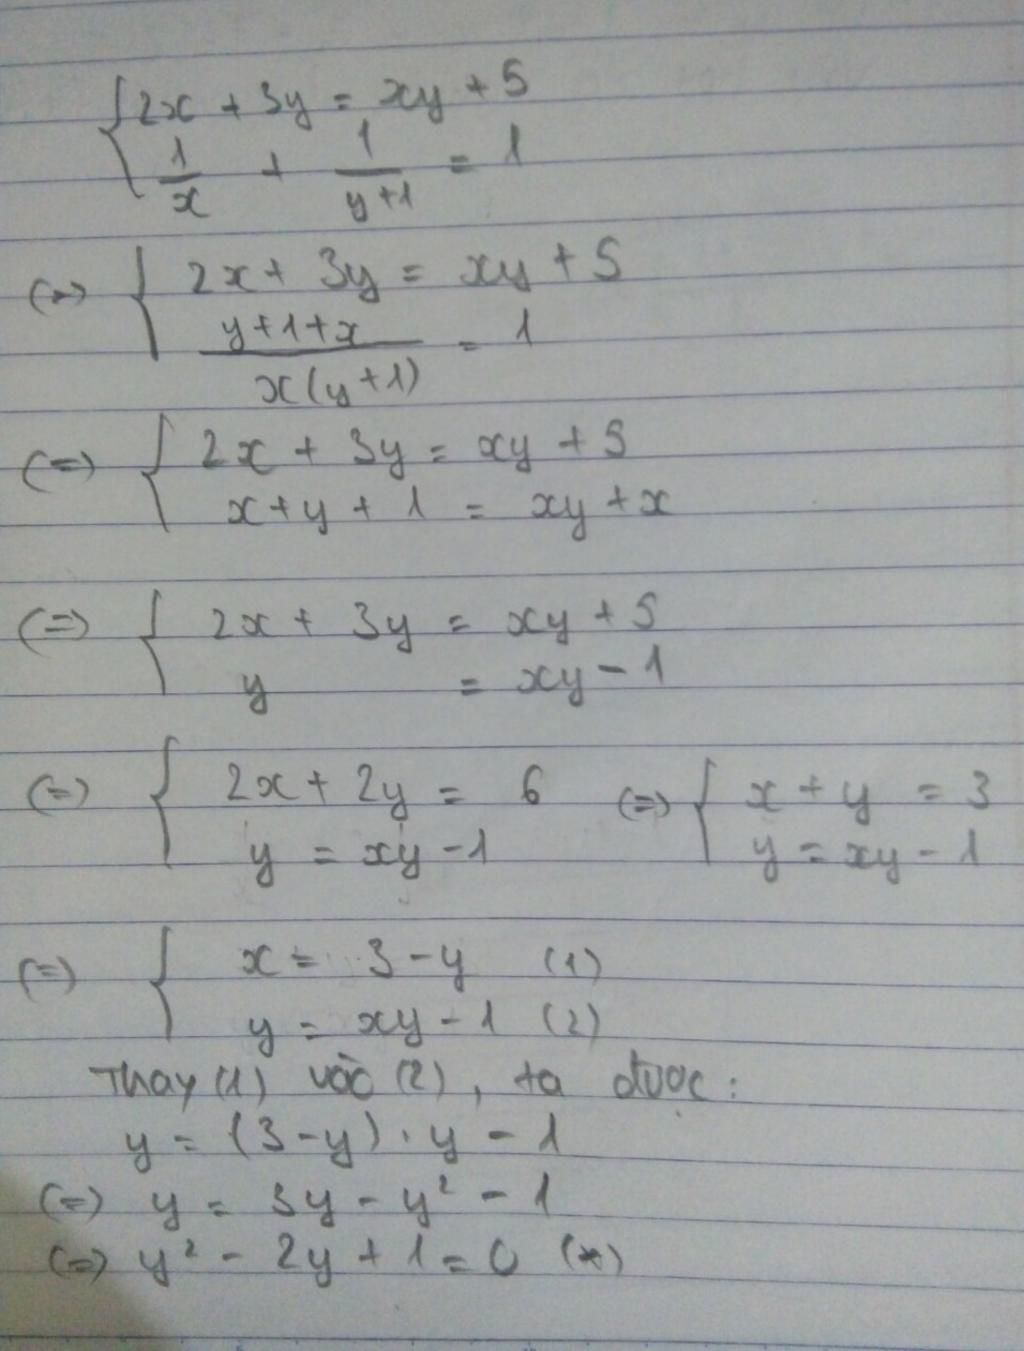 { 2x + 3y = xy + 5
1/x + 1/(y+1) = 1
(=) { 2x + 3y = xy + 5
(y+1+x)/(x(y+1)) = 1
(=) { 2x + 3y = xy + 5
x+y + 1 = xy + x
(=) { 2x + 3y = xy + 5
y = xy - 1
(=) { 2x + 2y = 6 (=) { x + y = 3
y = xy - 1 y = xy - 1
(=) { x = 3 - y (1)
y = xy - 1 (2)
Thay (1) vào (2), ta được:
y = (3 - y) . y - 1
(=) y = 3y - y² - 1
(=) y² - 2y + 1 = 0 (*)